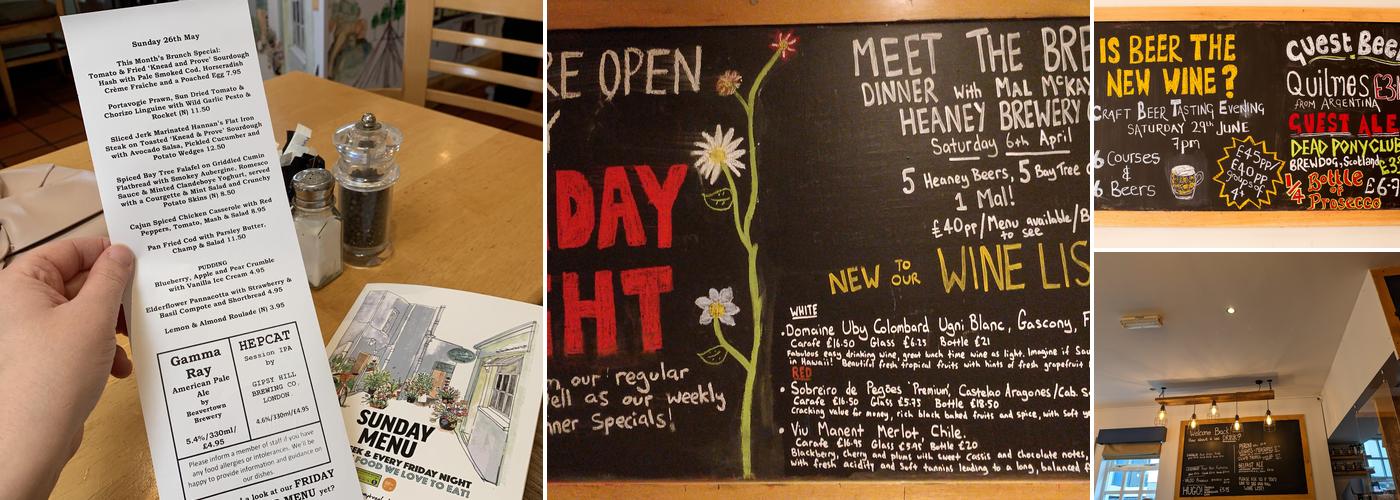 Sunday 26th May
This Month's Brunch Special:
Tomato & Fried 'Knead and Prove' Sourdough
Hash with Pale Smoked Cod, Horseradish
Crème Fraiche and a Poached Egg 7.95
Portavogie Prawn, Sun Dried Tomato &
Chorizo Linguine with Wild Garlic Pesto &
Rocket (N) 11.50
Sliced Jerk Marinated Hannan's Flat Iron
Steak on Toasted 'Knead & Prove' Sourdough
with Avocado Salsa, Pickled Cucumber and
Potato Wedges 12.50
Spiced Bay Tree Falafel on Griddled Cumin
Flatbread with Smokey Aubergine, Romesco
Sauce & Minted Clandeboye Yoghurt, served
with a Courgette & Mint Salad and Crunchy
Potato Skins (N) 8.50
Cajun Spiced Chicken Casserole with Red
Peppers, Tomato, Mash & Salad 8.95
Pan Fried Cod with Parsley Butter,
Champ & Salad 11.50
PUDDING
Blueberry, Apple and Pear Crumble
with Vanilla Ice Cream 4.95
Elderflower Pannacotta with Strawberry &
Basil Compote and Shortbread 4.95
Lemon & Almond Roulade (N) 3.95
Gamma
Ray
American Pale
Ale
by
Beavertown
Brewery
5.4%/330ml/
£4.95
HEPCAT
Session IPA
by
GIPSY HILL
BREWING CO.
LONDON
4.6%/330ml/£4.95
Please inform a member of staff if you have
any food allergies or intolerances. We'll be
happy to provide information and guidance on
our dishes.
a look at our FRIDAY
MENU yet?
SUNDAY
MENU
EK & EVERY FRIDAY NIGHT
FOOD WE LOVE TO EAT!
RE OPEN
Y
DAY
HT
our regular
ell as our weekly
ner Specials!
MEET THE BRE
DINNER with MAL McKAY
HEANEY BREWERY
Saturday 6th April
5 Heaney Beers, 5 Bay Tree
1 Mal!
£40pp/Menu available/B
to see
NEW TO OUR WINE LIS
WHITE
Domaine Uby Colombard Ugni Blanc, Gascony, F
Carafe £16.50 Glass £6.25 Bottle £21
Fabulous easy drinking wine, great lunch time wine as light. Imagine if Sau
in Hawaii! Beautiful fresh tropical fruits with hints of fresh grapefruit
RED
Sobreiro de Pegões 'Premium', Castelao Aragones/Cab. S
Carafe £16.50 Glass £5.75 Bottle £18.50
Cracking value for money, rich black baked fruits and spice, with soft
Viu Manent Merlot, Chile.
Carafe £16.95 Glass £5.95 Bottle £20
Blackberry, cherry and plums with sweet Cassis and chocolate notes,
with fresh acidity and soft tannins leading to a long, balanced f
IS BEER THE
NEW WINE?
CRAFT BEER TASTING EVENING
SATURDAY 29th JUNE
7pm
6 COURSES
&
6 BEERS
£45pp/
£40pp
groups of
4+
Guest Bee
Quilmes £3
FROM ARGENTINA
GUEST ALE
DEAD PONY CLUB
BREWDOG, Scotland
1/4 Bottle £6.7
of
Prosecco
Welcome Back
DRINK?
HUGO!